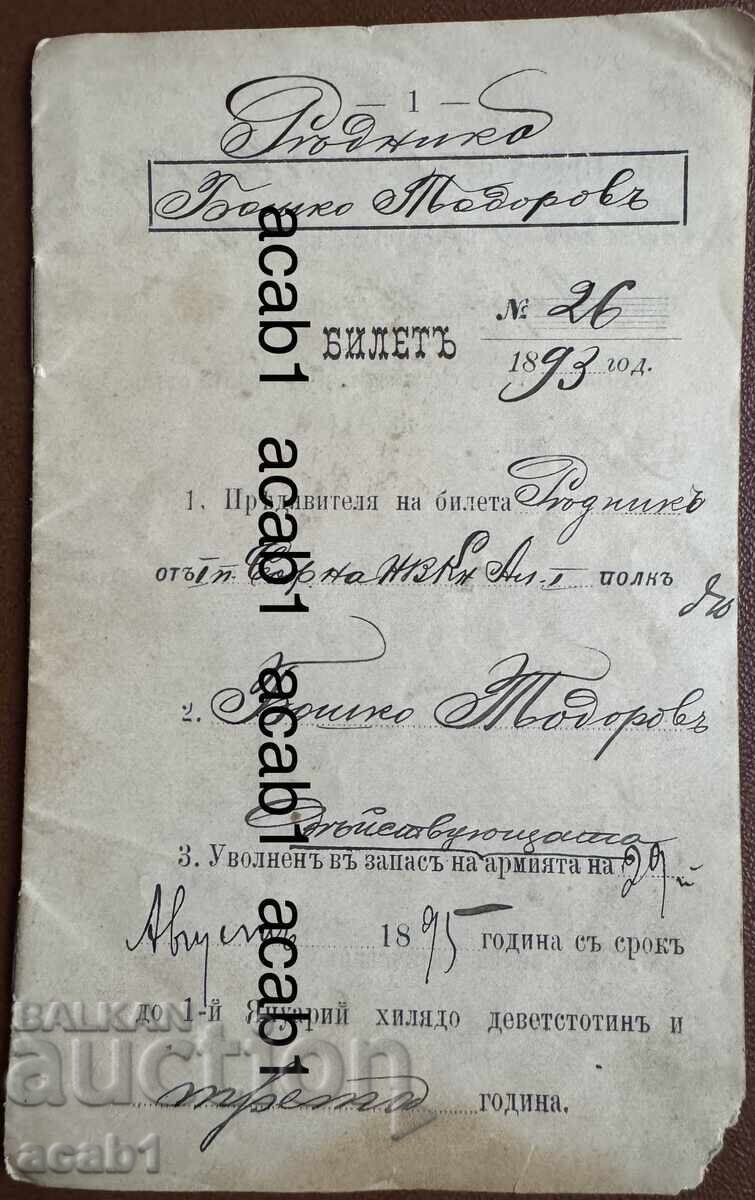 — 1 —
Рѣдника
Бошко Тодоровъ
БИЛЕТЪ
№ 26
1893 год.
1. Прѣдявителя на билета Рѣдникъ
отъ I п. Соф. на Н В Кн Ал. I полкъ
2. Бошко Тодоровъ
Дѣйствующата
3. Уволненъ въ запасъ на армията на 29-й
Августъ 1895 година съ срокъ
до 1-й Януарий хилядо деветстотинъ и
трета година.
acab1 acab1 acab1 acab1
BALKAN
auction
acab1